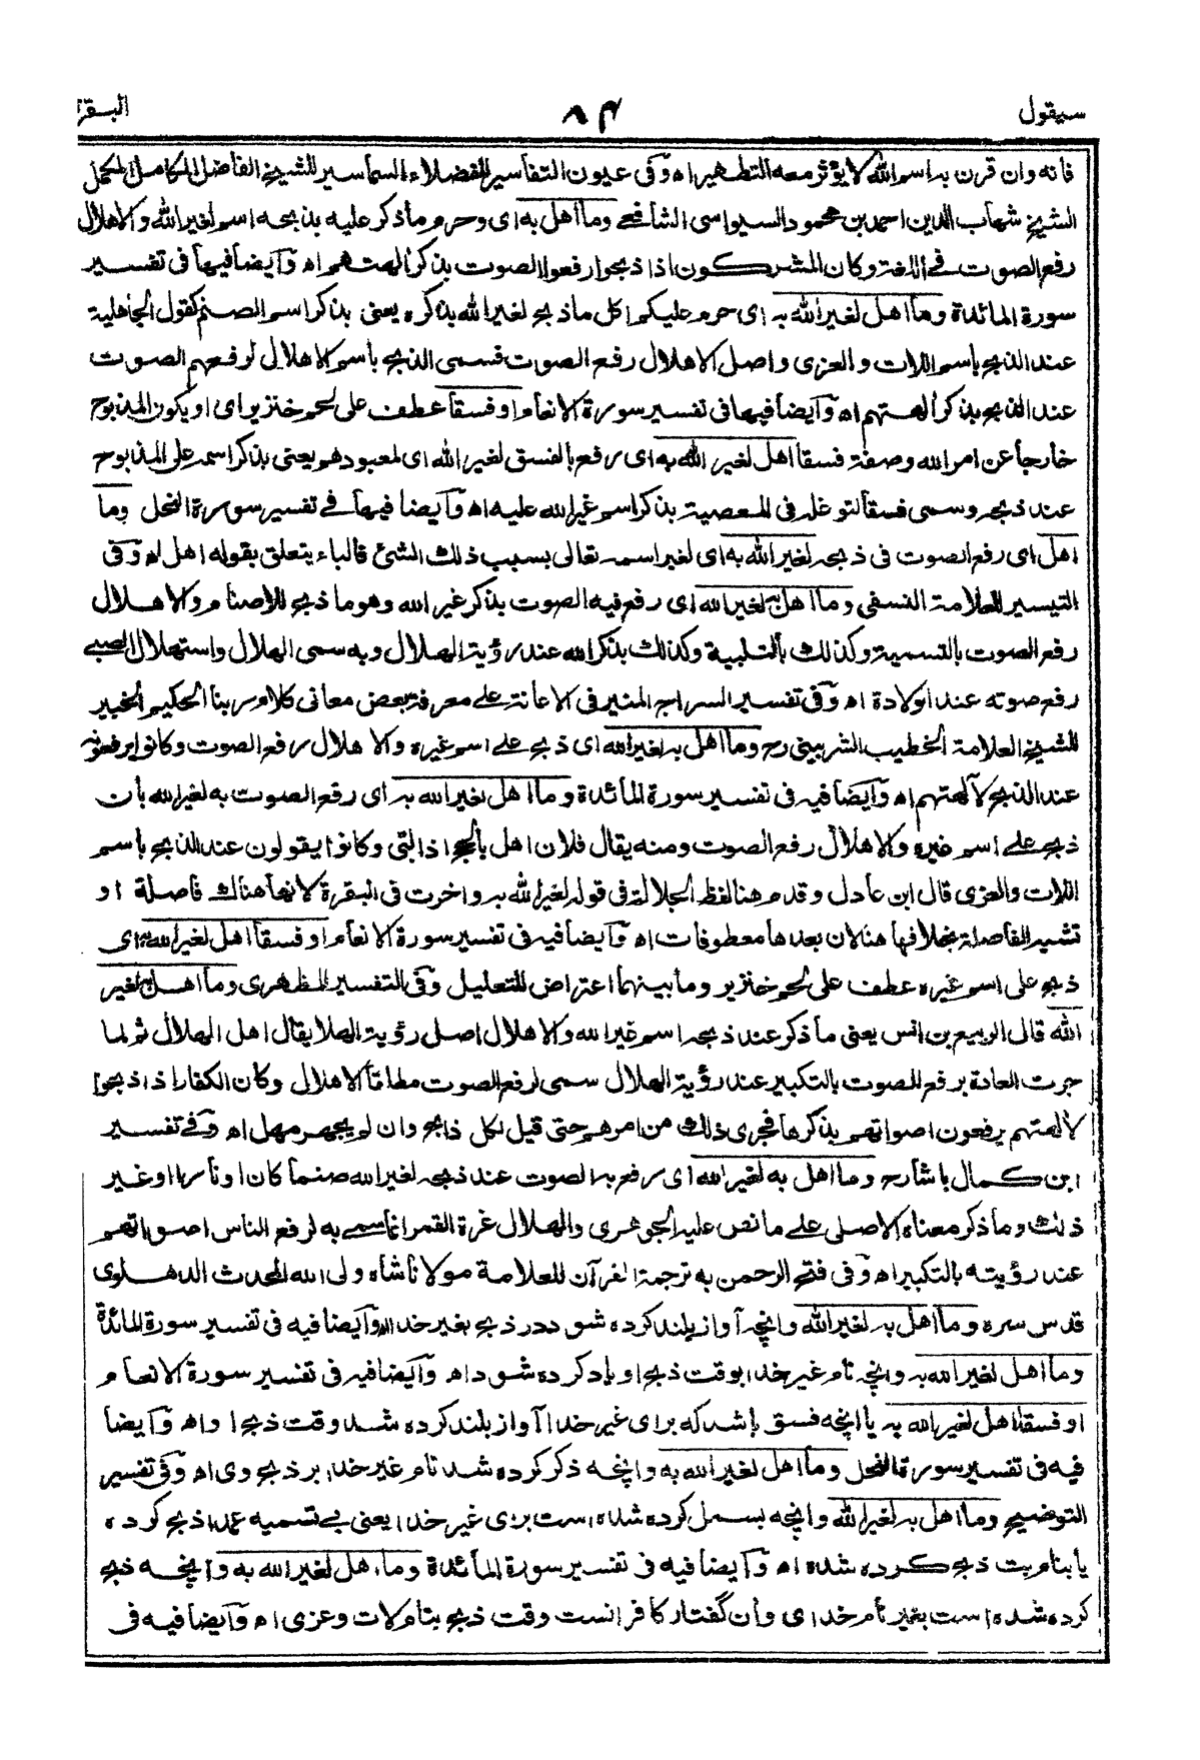 سيقول
٨٣
البقرة
فانه وان قرن به اسم الله لا يؤثر معه التطهير اه وفى عيون التفاسير للفضلاء السماسير للشيخ الفاضل الكامل المكمل
الشيخ شهاب الدين احمد بن محمود السيواسى الشافعى وما اهل به اى وحرم ما ذكر عليه بذبحه اسم لغير الله والاهلال
رفع الصوت فى اللغة وكان المشركون اذا ذبحوا رفعوا الصوت بذكر الهتهم اه وآيضا فيها فى تفسير
سورة المائدة وما اهل لغير الله به اى حرم عليكم اكل ما ذبح لغير الله بذكره يعنى بذكر اسم الصنم كقول الجاهلية
عند الذبح باسم اللات والعزى واصل الاهلال رفع الصوت فسمى الذبح باسم الاهلال لرفعهم الصوت
عند الذبح بذكر الهتهم اه وآيضا فيها فى تفسير سورة الانعام او فسقا عطف على لحم خنزير اى او يكون المذبوح
خارجا عن امر الله وصفة فسقا اهل لغير الله به اى رفع بالفسق لغير الله اى لمعبودهم يعنى بذكر اسمه على المذبوح
عند ذبحه وسمى فسقا لتوغله فى المعصية بذكر اسم غير الله عليه اه وآيضا فيها فى تفسير سورة النحل وما
اهل اى رفع الصوت فى ذبحه لغير الله به اى لغير اسمه تعالى بسبب ذلك الشئ فالباء يتعلق بقوله اهل اه وفى
التيسير للعلامة النسفى وما اهل به لغير الله اى رفع فيه الصوت بذكر غير الله وهو ما ذبح للاصنام والاهلال
رفع الصوت بالتسمية وكذلك بالتلبية وكذلك بذكر الله عند رؤية الهلال وبه سمى الهلال واستهلال الصبى
رفع صوته عند الولادة اه وفى تفسير السراج المنير فى الاعانة على معرفة بعض معانى كلام ربنا الحكيم الخبير
للشيخ العلامة الخطيب الشربينى رح وما اهل به لغير الله اى ذبح على اسم غيره والاهلال رفع الصوت وكانوا يرفعونه
عند الذبح لآلهتهم اه وآيضا فيه فى تفسير سورة المائدة وما اهل لغير الله به اى رفع الصوت به لغير الله بان
ذبح على اسم غيره والاهلال رفع الصوت ومنه يقال فلان اهل بالحج اذا لبى وكانوا يقولون عند الذبح باسم
اللات والعزى قال ابن عادل وقدم هنا لفظ الجلالة فى قوله لغير الله به واخرت فى البقرة لانها هناك فاصلة او
تشبه الفاصلة بخلافها هنا لان بعدها معطوفات اه وآيضا فيه فى تفسير سورة الانعام او فسقا اهل لغير الله به اى
ذبح على اسم غيره عطف على لحم خنزير وما بينهما اعتراض للتعليل وفى التفسير المظهرى وما اهل به لغير
الله قال الربيع بن انس يعنى ما ذكر عند ذبحه اسم غير الله والاهلال اصل رؤية الهلا يقال اهل الهلال ثم لما
جرت العادة برفع الصوت بالتكبير عند رؤية الهلال سمى لرفع الصوت مطلقا الاهلال وكان الكفار اذا ذبحوا
لآلهتهم يرفعون اصواتهم بذكرها فجرى ذلك من امرهم حتى قيل لكل ذابح وان لم يجهر مهل اه وفى تفسير
ابن كمال باشا رح وما اهل به لغير الله اى رفع به الصوت عند ذبحه لغير الله صنما كان او نارا او غير
ذلك وما ذكر معناه الاصلى على ما نص عليه الجوهرى والهلال غرة القمر انما سمى به لرفع الناس اصواتهم
عند رؤيته بالتكبير اه وفى فتح الرحمن به ترجمة القرآن للعلامة مولانا شاه ولى الله المحدث الدهلوى
قدس سره وما اهل به لغير الله وانچه آواز بلند كرده شود در ذبح بغير خدا اه وآيضا فيه فى تفسير سورة المائدة
وما اهل لغير الله به وانچه نام غير خدا بوقت ذبح او ياد كرده شود اه وآيضا فيه فى تفسير سورة الانعام
او فسقا اهل لغير الله به يا انچه فسق باشد كه براى غير خدا آواز بلند كرده شد وقت ذبح او اه وآيضا
فيه فى تفسير سورة النحل وما اهل لغير الله به وانچه ذكر كرده شد نام غير خدا بر ذبح وى اه وفى تفسير
التوضيح وما اهل به لغير الله وانچه بسمل كرده شده است براى غير خدا يعنى بے تسميه عمدا ذبح كرده
يا بنام بت ذبح كرده شده اه وآيضا فيه فى تفسير سورة المائدة وما اهل لغير الله به وآنچه ذبح
كرده شده است بغير نام خداى وآن گفتار كافرانست وقت ذبح بنام لات وعزى اه وآيضا فيه فى